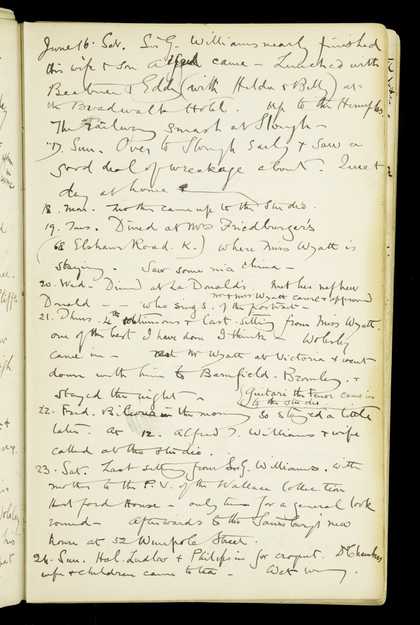 June 16. Sat. Sir G. Williams nearly finished
his wife & son Alfred came - Lunched with
& Eddy (with Hilda & Bell) at
the Broadwalk Hotel. up to the
The Railway smash at Slough -
17. Sun. Over to Slough early & saw a
good deal of wreakage about. Quiet
day at home
18. Mon. came up to the Studio.
19. Tues. Dined at Mrs Friedberger's
(68 Elsham Road. K.) where Miss Wyatt is
staying. Saw some nice china -
20. Wed - Dined at La Donald's. Met her nephew
Donald - - who sang s. Mr & Miss Wyatt came & approved of the portrait -
21. Thurs. 4th & last sitting from Miss Wyatt.
one of the best I have done I think - Wolseley
came in - Mr Wyatt at Victoria & went
down with him to Barnfield. Bromley. &
stayed the night - the tenor came in to the studio
22. Frid. in the morning so stayed a little
later. At 12. Alfred J. Williams & wife
called at the studio.
23. Sat. Last sitting from Sir G. Williams. with
mother to the P.V. of the Wallace Collection
Hertford House - only time for a general look
round - afterwards to the new
house at 32 Wimpole Street.
24. Sun. Hal. Ludlow & Philips in for croquet. D. Chambers
wife & children came to tea - Wet